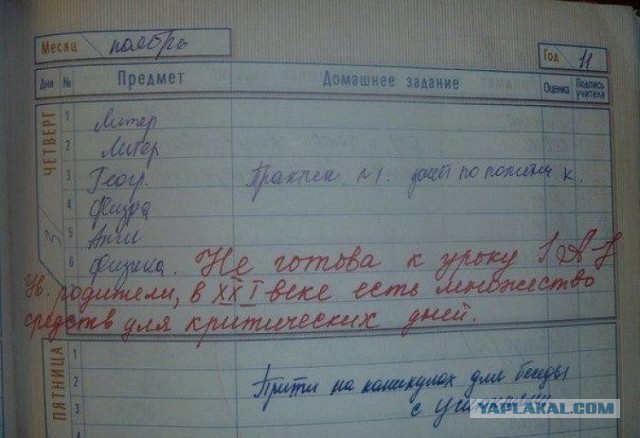 Месяц ноябрь Год 11
Дни № Предмет Домашнее задание Оценка Подпись учителя
ЧЕТВЕРГ
3
1 Литер
2 Литер
3 Геогр. Практич. №1. по политич к.
4 Физра
5 Англ
6 Физика. Не готова к уроку
Ув. родители, в XXI веке есть множество
средств для критических дней.
ПЯТНИЦА
1
2 Прийти на каникулах для беседы
3 с
4
YAPLAKAL.COM